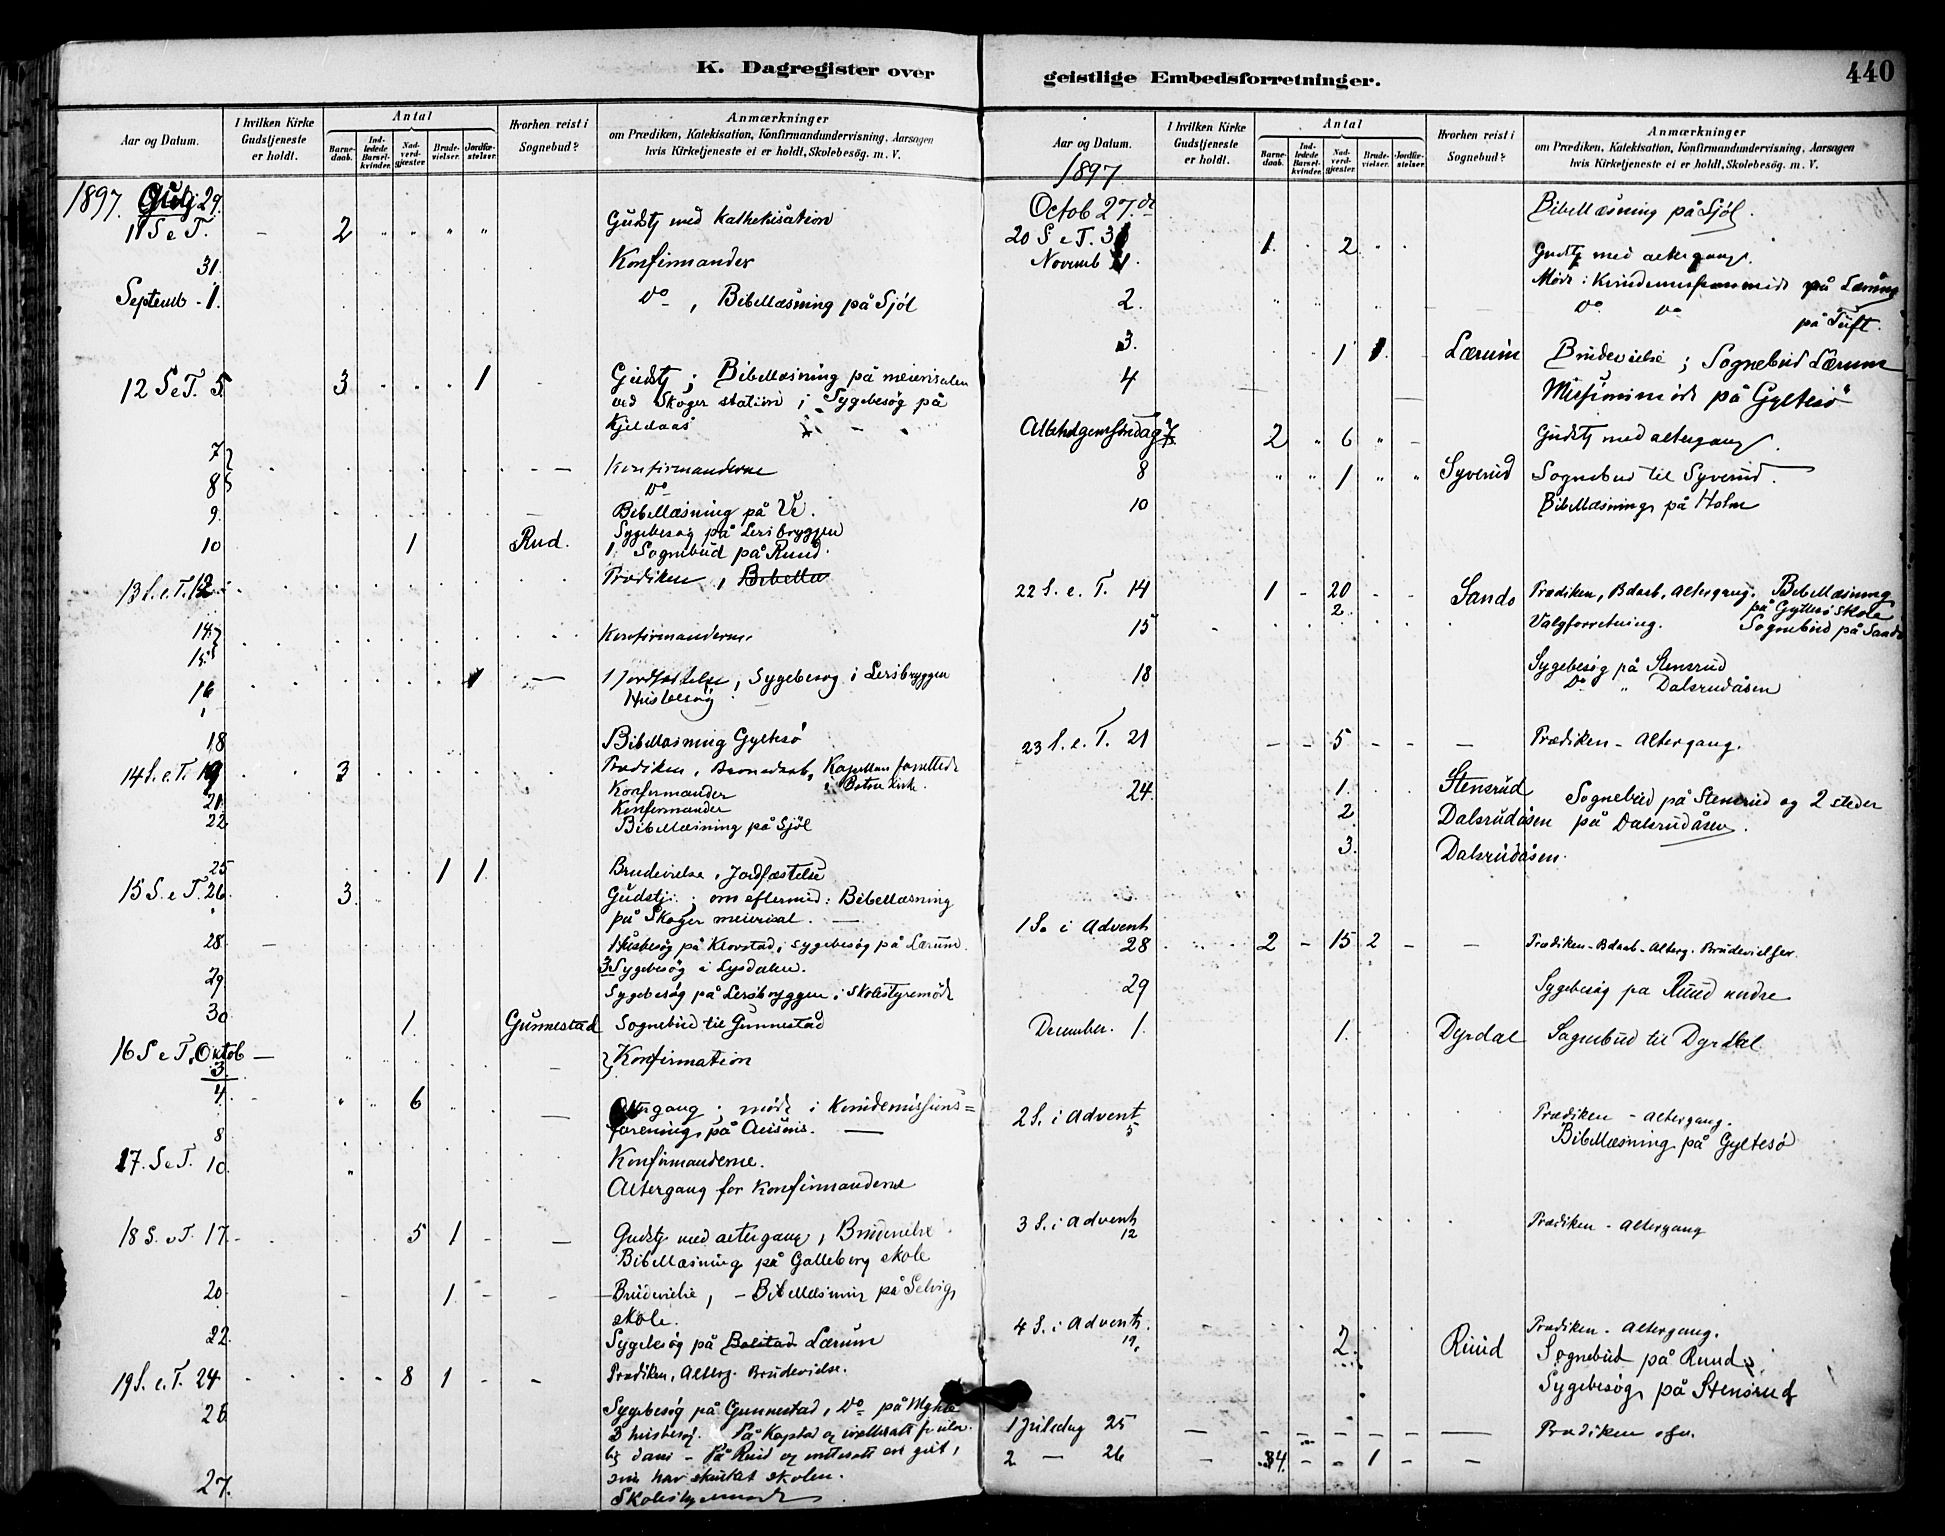 K. Dagregister over
Aar og Datum.
I hvilken Kirke Gudstjeneste er holdt.
Antal
Barne-daab.
Ind-ledede Barsel-kvinder.
Nad-verd-gjæster
Brude-vielser.
Jordfæ-stelser.
Hvorhen reist i Sognebud?
Anmærkninger
om Prædiken, Katekisation, Konfirmandundervisning, Aarsagen
hvis Kirketjeneste ei er holdt, Skolebesög. m. V.
1897. 29.
11 S e T. - 2 Gudstj med Kathekisation
31. Konfirmander
Septemb - 1. Do , Bibellæsning på Sjöl
12 S e T. 5. 3 1 Gudstj ; Bibellæsning på meierisalen
ved Skoger station ; Sygebesøg på
Kjeldaas
7 Konfirmanderne
8 Do
9. Bibellæsning på Ve.
Sygebesøg på Lersbryggen
10 1 Rud. 1 Sognebud på Ruud.
13 S. e. T. 12 Prædiken , Bibellæ
14. Konfirmanderne
15.
16 1 1 Jordfæstelse , Sygebesøg i Lersbryggen
Husbesøg
18 Bibellæsning Gyltesø
14 S. e. T. 19 3 Prædiken , Barnedaab, Kapellan forrettede
i Botne kirke.
Konfirmander
21. Konfirmander
22 Bibellæsning på Sjöl
25 1 1. Brudevielse , Jordfæstelse
15 S. e T. 26. 3. Gudstj. ; om eftermid : Bibellæsning
på Skoger meierisal.
28 Husbesøg på Klovstad, sygebesøg på Lærum.
3 Sygebesøg i Lysdalen.
29 Sygebesøg på Lersbryggen ; Skolestyremøde
30 1. Gunnestad Sognebud til Gunnestad
16 S e T. Oktob 3. Konfirmation
4. 6 Altergang ; møde i Kvindemissions=
forening på
8 Konfirmanderne.
17. S e T. 10 Altergang for Konfirmanderne
18 S. e T. 17. 5 1 Gudstj med altergang , Brudevielse
Bibellæsning på Galleberg skole
20 1. Brudevielse , - Bibellæsning på Selvig
skole.
22. Sygebesøg på Bolstad Lærum
19 S. e. T. 24 8 1 Prædiken, Alterg. Brudevielse.
26 Sygebesøg på Gunnestad , Do på
3 husbesøg. På Kopstad og
dans - På Ruud og
som har skulkat skolen.
27. Skolestyremøde
geistlige Embedsforretninger.
440
Aar og Datum.
I hvilken Kirke Gudstjeneste er holdt.
Antal
Barne-daab.
Ind-ledede Barsel-kvinder.
Nad-verd-gjæster
Brude-vielser.
Jordfæ-stelser.
Hvorhen reist i Sognebud?
Anmærkninger
om Prædiken, Katekisation, Konfirmandundervisning, Aarsagen
hvis Kirketjeneste ei er holdt, Skolebesög. m. V.
1897
Octob 27. de Bibellæsning på Sjöl.
20 S e T. 31 1. 2 Gudstj med altergang.
Novemb 1. Møde i på Læring
2. Do Do på Tuft.
3. 1 1 Lærum Brudevielse ; Sognebud Lærum
4 Missionsmøde på Gyltesø
Allehelgensøndag 7 2 6 Gudstj med altergang.
8 1 Syverud Sognebud til Syverud.
10 Bibellæsning på Holm
22 S. e. T. 14 1 - 20 - - Sando Prædiken, Bdaab, Altergang. Bibellæsning
på Gyltesø skole
2 Sognebud på Sando
15 Valgforretning.
18 Sygebesøg på Stensrud
Do " Dalsrudåsen
23 S. e. T. 21 - - 5 - - - Prædiken - Altergang.
24. 1. Stensrud Sognebud på Stensrud og 2 steder
2. Dalsrudåsen på Dalsrudåsen.
3. Dalsrudåsen.
1 S. i Advent
28 2 - 15 2 - - Prædiken - Bdaab - Alterg. Brudevielser.
29 Sygebesøg på Ruud nedre
December. 1. 1. Dyrdal Sognebud til Dyrdal
2 S. i Advent 5 Prædiken - Altergang.
Bibellæsning på Gyltesø
3 S. i Advent 12 Prædiken - Altergang
4 S. i Advent. 19. Prædiken - Altergang.
2. Ruud Sognebud på Ruud
Sygebesøg på Stensrud
1 Juledag 25 - Prædiken
2 — 26 - 4. - - 1 - -